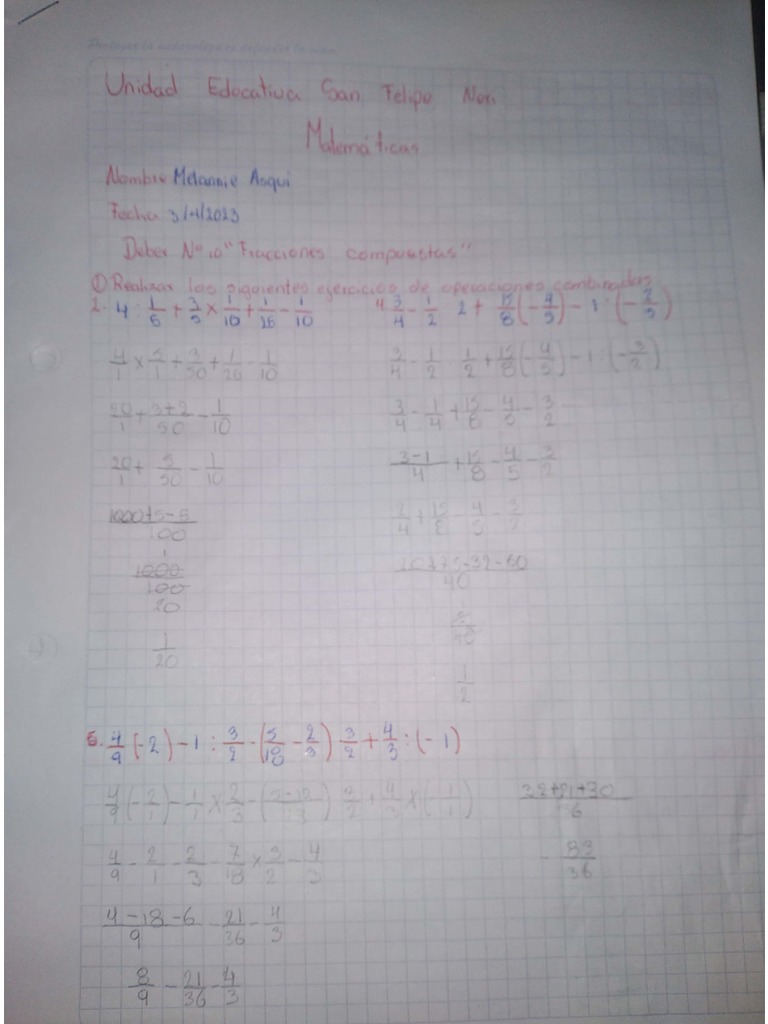 Unidad Educativa San Felipo Neri
Matemáticas
Nombre Melannie Asqui
Fecha 3/4/2023
Deber Nº 10 "Fracciones compuestas"
① Realizar los siguientes ejercicios de operaciones combinadas
2. 4 : 1/5 + 3/5 × 1/10 + 1/25 - 1/10
4/1 × 5/1 + 3/50 + 1/25 - 1/10
20/1 + 3+2/50 - 1/10
20/1 + 5/50 - 1/10
1000+5-5/100
1000/100
20
1/20
4. 3/4 - 1/2 : 2 + 15/8 (-4/5) - 1 : (-2/3)
3/4 - 1/2 · 1/2 + 15/8 (-4/5) - 1 : (-3/2)
3/4 - 1/4 + 15/8 - 4/5 - 3/2
3-1/4 + 15/8 - 4/5 - 3/2
2/4 + 15/8 - 4/5 - 3/2
1/2
6. 4/9 (-2) - 1 : 3/2 - (5/18 - 2/3) · 3/2 + 4/3 : (-1)
4/9 - 2/1 - 2/3 - 7/18 × 3/2 - 4/3
4-18-6/9 - 21/36 - 4/3
8/9 - 21/36 - 4/3
- 83/36